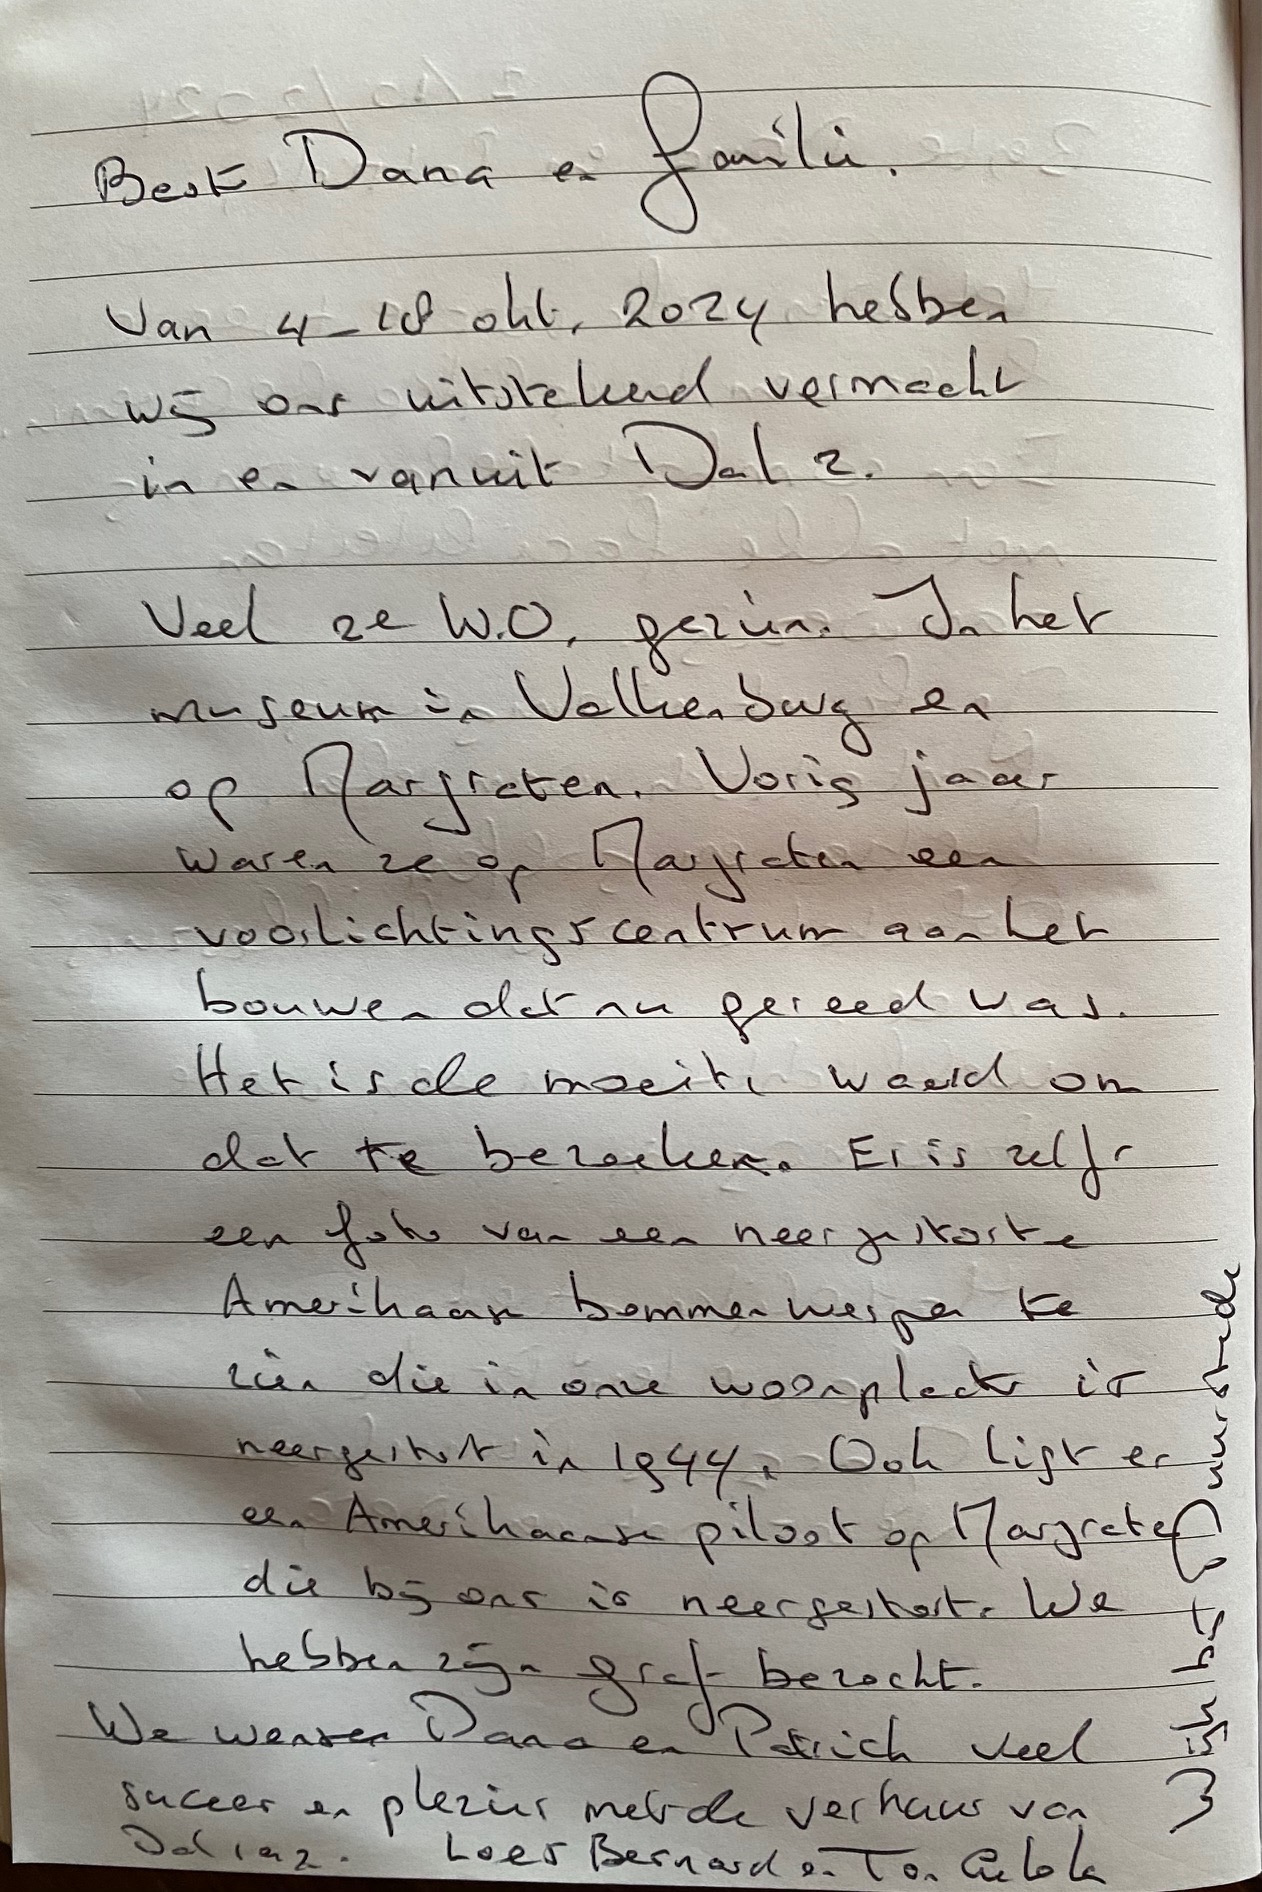 Beste Dana en familie.
Van 4-18 okt. 2024 hebben
wij ons uitstekend vermaakt
in en vanuit Dal 2.
Veel 2e W.O. gezien. In het
museum in Valkenburg en
op Margraten. Vorig jaar
waren ze op Margraten een
voorlichtingscentrum aan het
bouwen dat nu gereed was.
Het is de moeite waard om
dat te bezoeken. Er is zelfs
een foto van een neergestorte
Amerikaanse bommenwerper te
zien die in onze woonplaats is
neergestort in 1944. Ook ligt er
een Amerikaanse piloot op Margraten
die bij ons is neergestort. We
hebben zijn graf bezocht.
We wensen Dana en Patrick veel
succes en plezier met de verhuur van
Dal 1 en 2. Loes Bernard en Ton
Wijk bij Duurstede